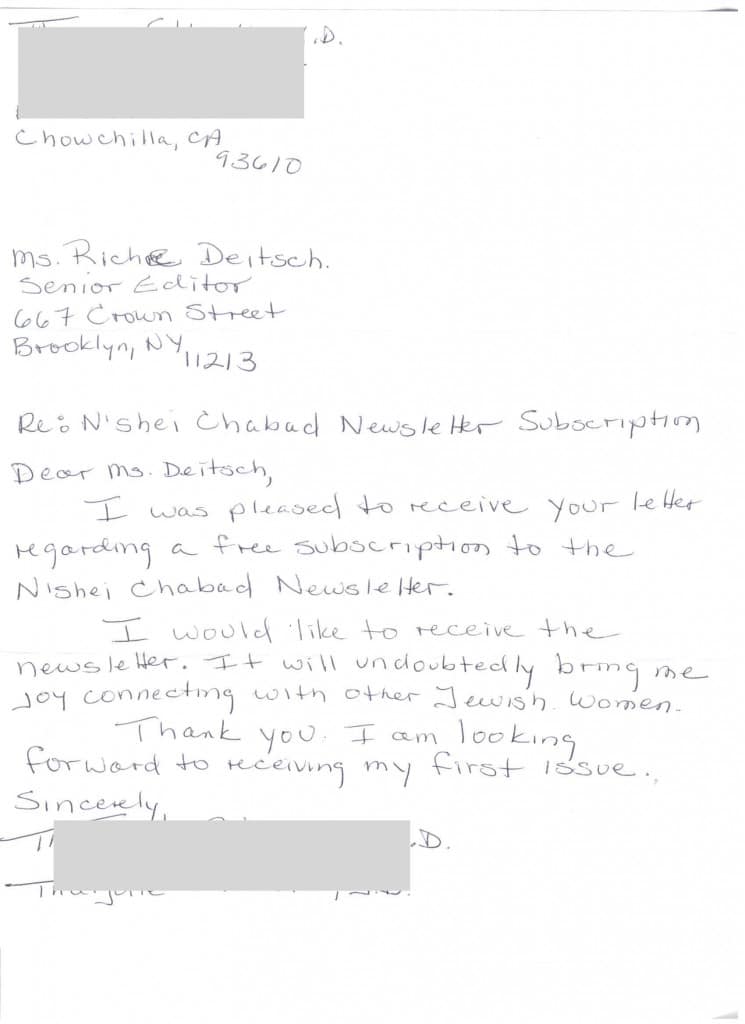 .D.
Chowchilla, CA
93610
Ms. Richie Deitsch.
Senior Editor
667 Crown Street
Brooklyn, NY
11213
Re: N'shei Chabad Newsletter Subscription
Dear Ms. Deitsch,
I was pleased to receive your letter
regarding a free subscription to the
N'shei Chabad Newsletter.
I would like to receive the
newsletter. It will undoubtedly bring me
joy connecting with other Jewish Women.
Thank you. I am looking
forward to receiving my first issue.
Sincerely,
.D.